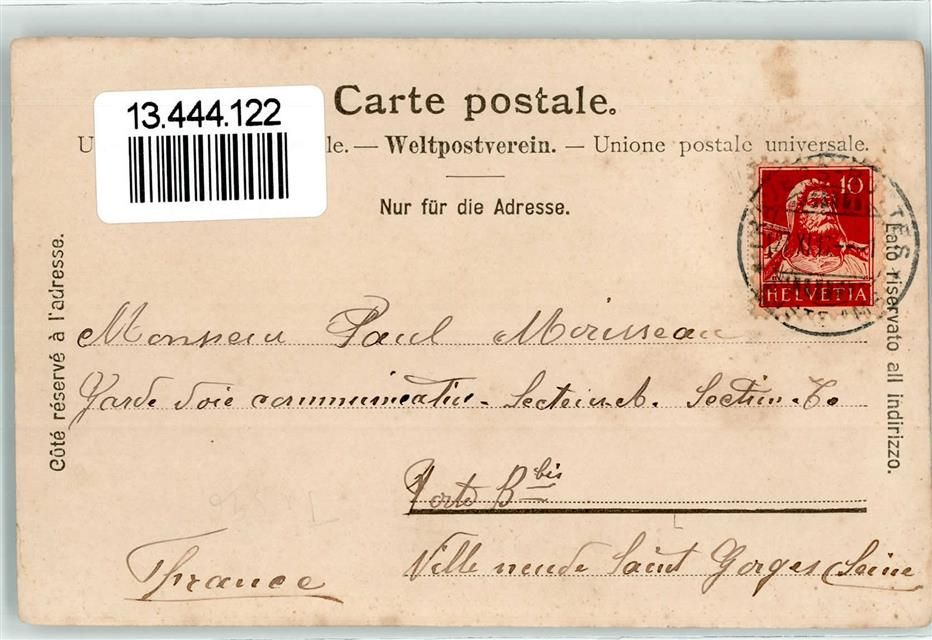 13.444.122
Carte postale.
U le. — Weltpostverein. — Unione postale universale.
Nur für die Adresse.
Côté réservé à l'adresse.
Lato riservato all indirizzo.
10
HELVETIA
Monsieur Paul Morisseau
Garde Voie communicatio - Secteur A. Section C.
Porte B bis
Ville neude Saint Gorges (Seine
France